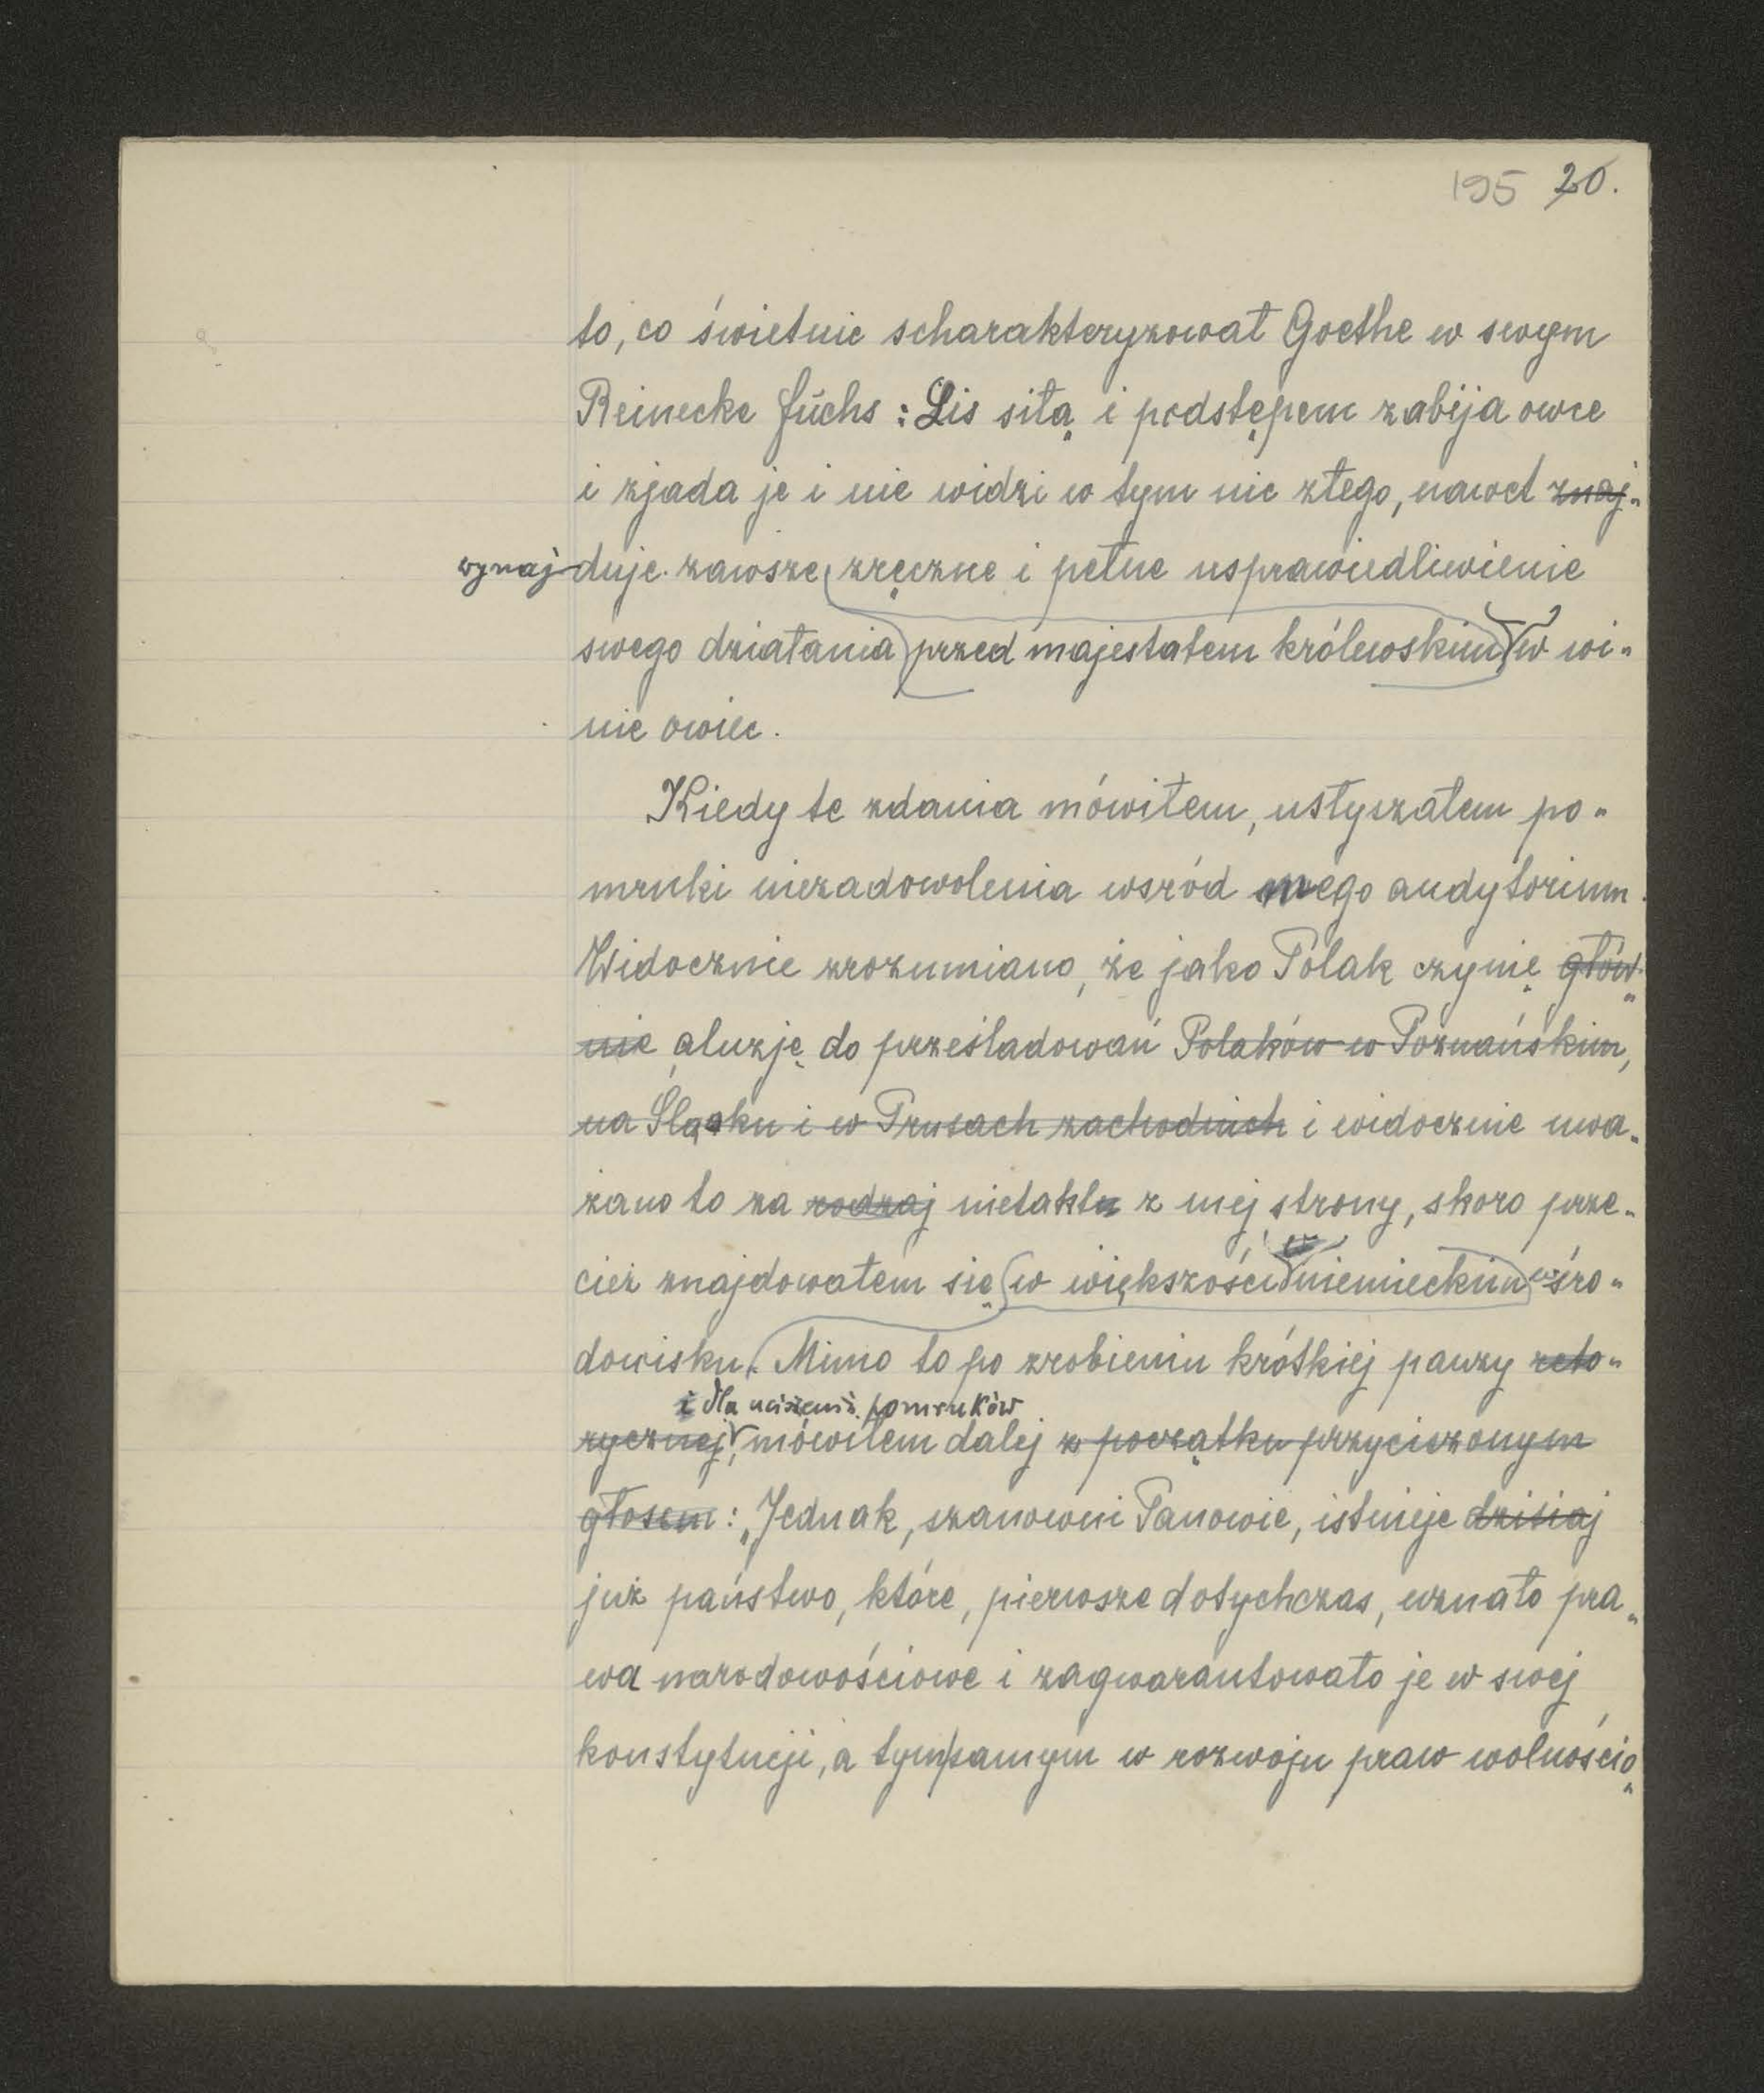 195 20.
to, co świetnie scharakteryzował Goethe w swym
Reinecke Fuchs: Lis siłą i podstępem zabija owce
i zjada je i nie widzi w tym nic złego, nawet znaj-
wynaj-duje zawsze zręczne i pełne usprawiedliwienie
swego działania przed majestatem królewskim w wi-
nie owiec.
Kiedy te zdania mówiłem, usłyszałem po-
mruki niezadowolenia wsród mego audytorium.
Widocznie zrozumiano, że jako Polak czynię głów-
nie aluzję do prześladowań Polaków w Poznańskim,
na Śląsku i w Prusach zachodnich i widocznie uwa-
żano to za rodzaj nietaktu z mej strony, skoro prze-
cież znajdowałem się w większości niemieckim śro-
dowisku. Mimo to po zrobieniu krótkiej pauzy reto-
i dla uciszenia pomruków
rycznej, mówiłem dalej z początku przyciszonym
głosem: „Jednak, szanowni Panowie, istnieje dzisiaj
już państwo, które, pierwsze dotychczas, uznało pra-
wa narodowościowe i zagwarantowało je w swej
konstytucji, a tym samym w rozwoju praw wolnościo-